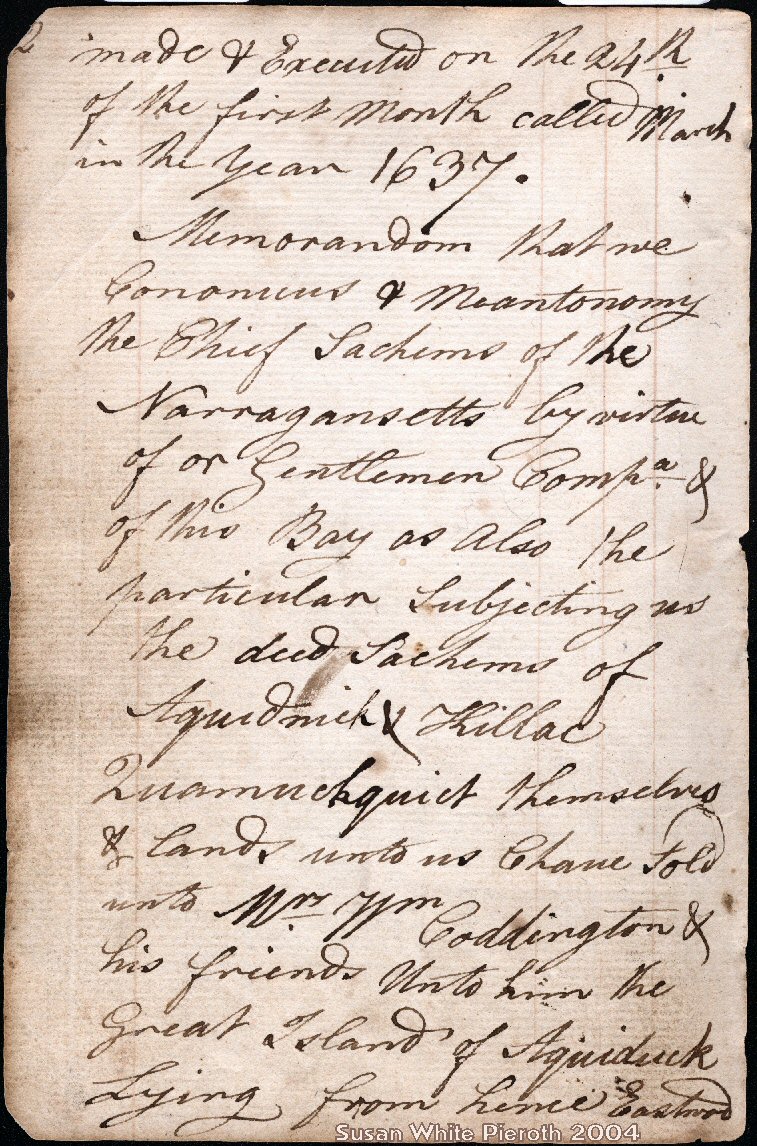 2
made & Executed on the 24th
of the first Month called March
in the Year 1637.
Memorandom that we
Cononicus & Meantonomy
the Chief Sachems of the
Narragansetts by virtue
of or Gentlemen Compa. &
of this Bay as Also the
particular Subjecting us
the deed Sachems of
Aquidnick & Killac
Quamuckquiet themselves
& Lands unto us Chave Sold
unto Mr Wm Coddington &
his friends Unto him the
Great Island of Aquiduck
Lying from hence Eastwod
Susan White Pieroth 2004